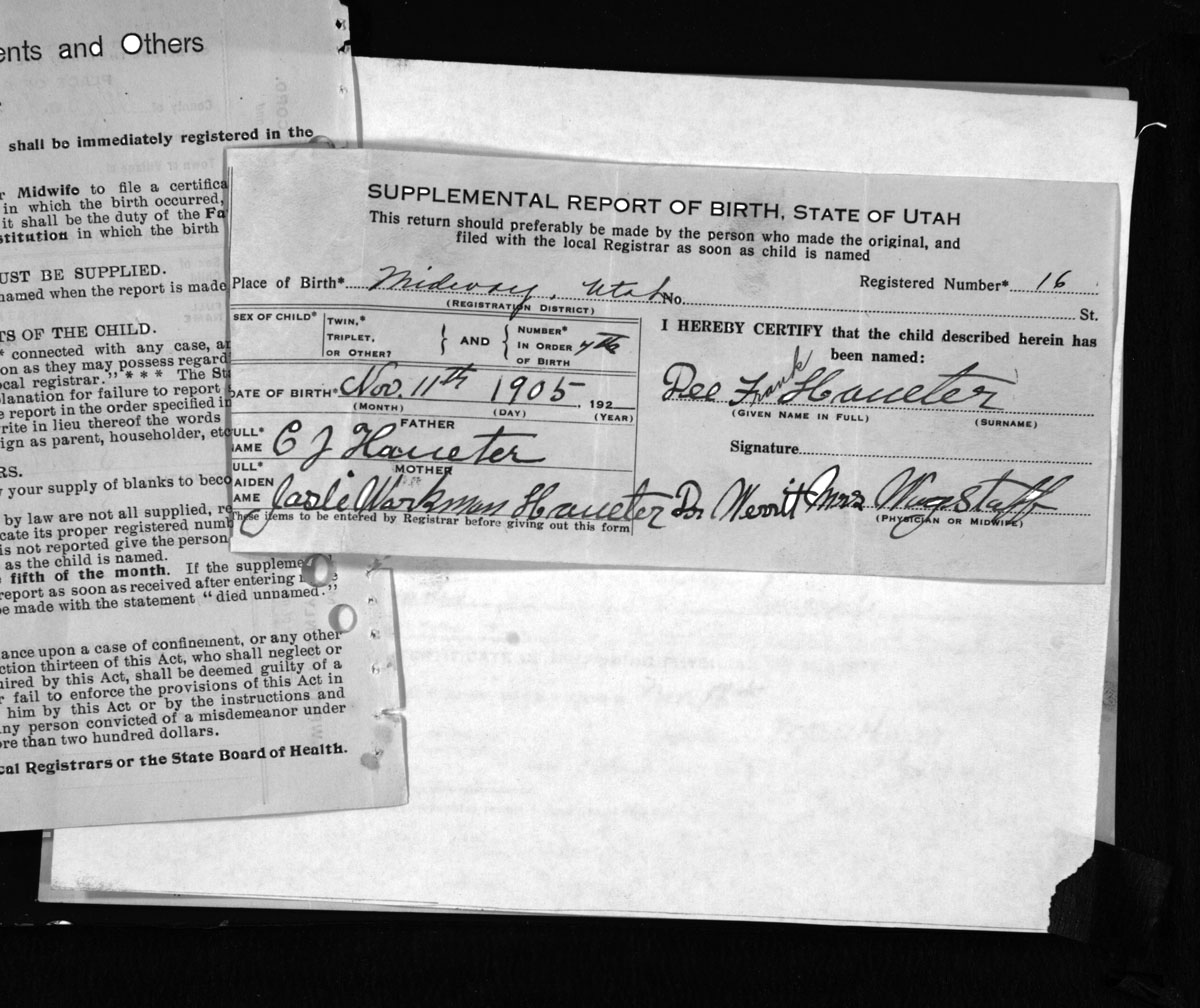 ents and Others
shall be immediately registered in the
r Midwife to file a certifica
in which the birth occurred,
it shall be the duty of the Fa
stitution in which the birth
UST BE SUPPLIED.
named when the report is made
TS OF THE CHILD.
* connected with any case, a
on as they may possess regard
ocal registrar." * * * The St
lanation for failure to report
e report in the order specified in
rite in lieu thereof the words
ign as parent, householder, etc
RS.
your supply of blanks to beco
by law are not all supplied, re
cate its proper registered numb
is not reported give the person
as the child is named.
fifth of the month. If the suppleme
report as soon as received after entering
be made with the statement "died unnamed."
ance upon a case of confinement, or any other
ction thirteen of this Act, who shall neglect or
uired by this Act, shall be deemed guilty of a
r fail to enforce the provisions of this Act in
him by this Act or by the instructions and
ny person convicted of a misdemeanor under
ore than two hundred dollars.
cal Registrars or the State Board of Health.
SUPPLEMENTAL REPORT OF BIRTH, STATE OF UTAH
This return should preferably be made by the person who made the original, and
filed with the local Registrar as soon as child is named
Place of Birth* Midway, Utah No. St.
Registered Number* 16
(REGISTRATION DISTRICT)
SEX OF CHILD* TWIN,* TRIPLET, OR OTHER? AND NUMBER* IN ORDER OF BIRTH 7th
DATE OF BIRTH* Nov. 11th 1905, 192
(MONTH) (DAY) (YEAR)
FATHER
ULL* AME C J Haueter
MOTHER
ULL* AIDEN AME Workman Haueter
These items to be entered by Registrar before giving out this form
I HEREBY CERTIFY that the child described herein has
been named:
Dee Frank Haueter
(GIVEN NAME IN FULL) (SURNAME)
Signature
Dr Werrit Mrs Wagstaff
(PHYSICIAN OR MIDWIFE)